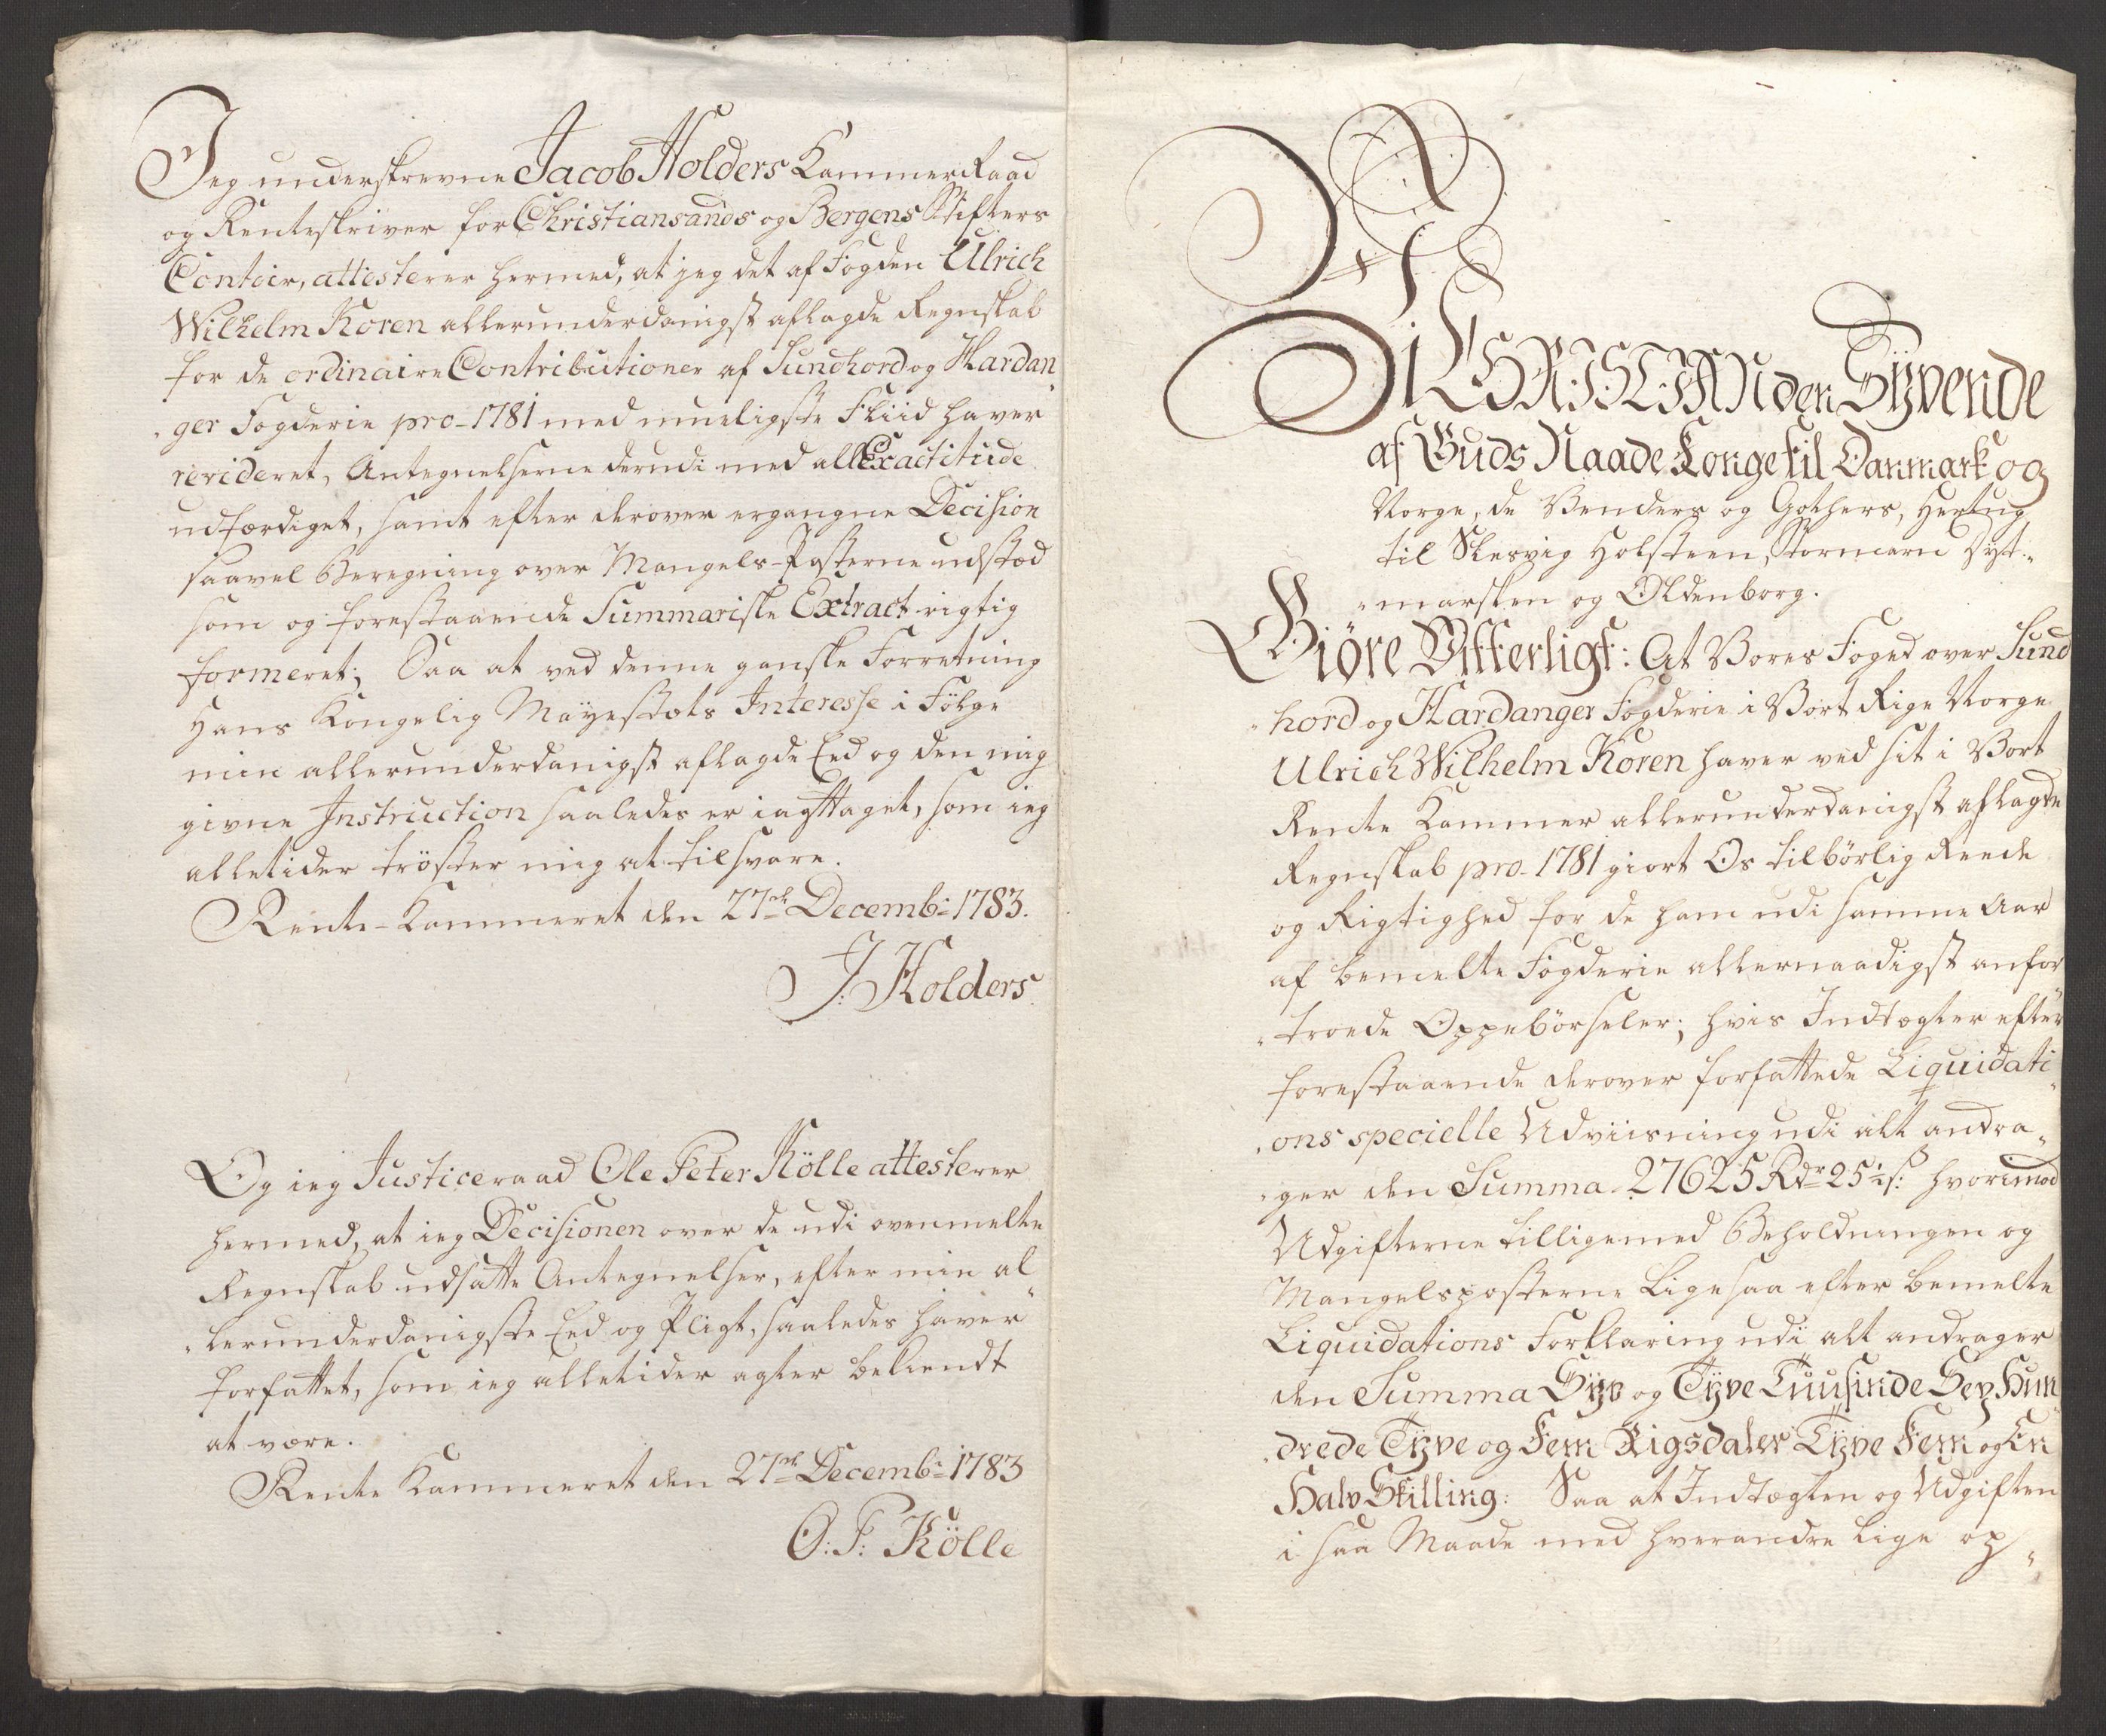 Jeg underskrevne Jacob Holders KammerRaad
og Renteskriver for Christiansands og Bergens Stifters
Contoir, attesterer hermed, at jeg det af Fogden Ulrich
Wilhelm Koren allerunderdanigst aflagde Regnskab
for de ordinaire Contributioner af Sundhord og Hardan„
„ger Fogderie pro 1781 med mueligste Fliid haver
revideret, Antegnelserne derudi med all Exactitude
udfærdiget, samt efter derover ergangne Decision
saavel Beregning over Mangels-Posterne udstæd
som og forestaaende Summariske Extract rigtig
formeret; Saa at ved denne ganske Forretning
Hans Kongelig Mayestæts Interesse i Følge
min allerunderdanigst aflagde Eed og den mig
givne Instruction saaledes er iagttaget, som ieg
alletider trøster mig at tilsvare.
Rente-Kammeret den 27de Decemb: 1783.
J: Holders
Og ieg Justiceraad Ole Peter Kölle attesterer
hermed, at ieg Decisionen over de udi ovenmelte
Regnskab udsatte Antegnelser, efter min al„
„lerunderdanigste Eed og Pligt, saaledes haver
forfattet, som ieg alletider agter bekiendt
at være.
Rente Kammeret den 27de Decemb: 1783
O: P: Kölle
Vi CHRISTIAN den Syvende
af Guds Naade Konge til Danmark og
Norge, de Venders og Gothers, Hertug
til Slesvig Holsteen, Stormarn Dyt„
„marsken og Oldenborg.
Giöre Vitterligt: At Vores Foged over Sund
„hord og Hardanger Fogderie i Vort Rige Norge
Ulrich Wilhelm Koren haver ved sit i Vort
Rente Kammer allerunderdanigst aflagde
Regnskab pro 1781 giort Os tilbörlig Reede
og Rigtighed for de ham udi samme Aar
af bemelte Fogderie allernaadigst anfor„
„troede Oppebörseler; hvis Indtægter efter
forestaaende derover forfattede Liquidati„
„ons specielle Udviisning udi alt andra„
„ger den Summa 27625 Rdr 25½ s: hvorimod
Udgifterne tilligemed Beholdningen og
Mangelsposterne Ligesaa efter bemelte
Liquidations Forklaring udi alt andrager
den Summa Syv og Tyve Tuusinde Sex Hun„
„drede Tyve og Fem Rigsdaler Tyve Fem og En
Halv Skilling: Saa at Indtægten og Udgiften
i saa Maade med hverandre lige op„